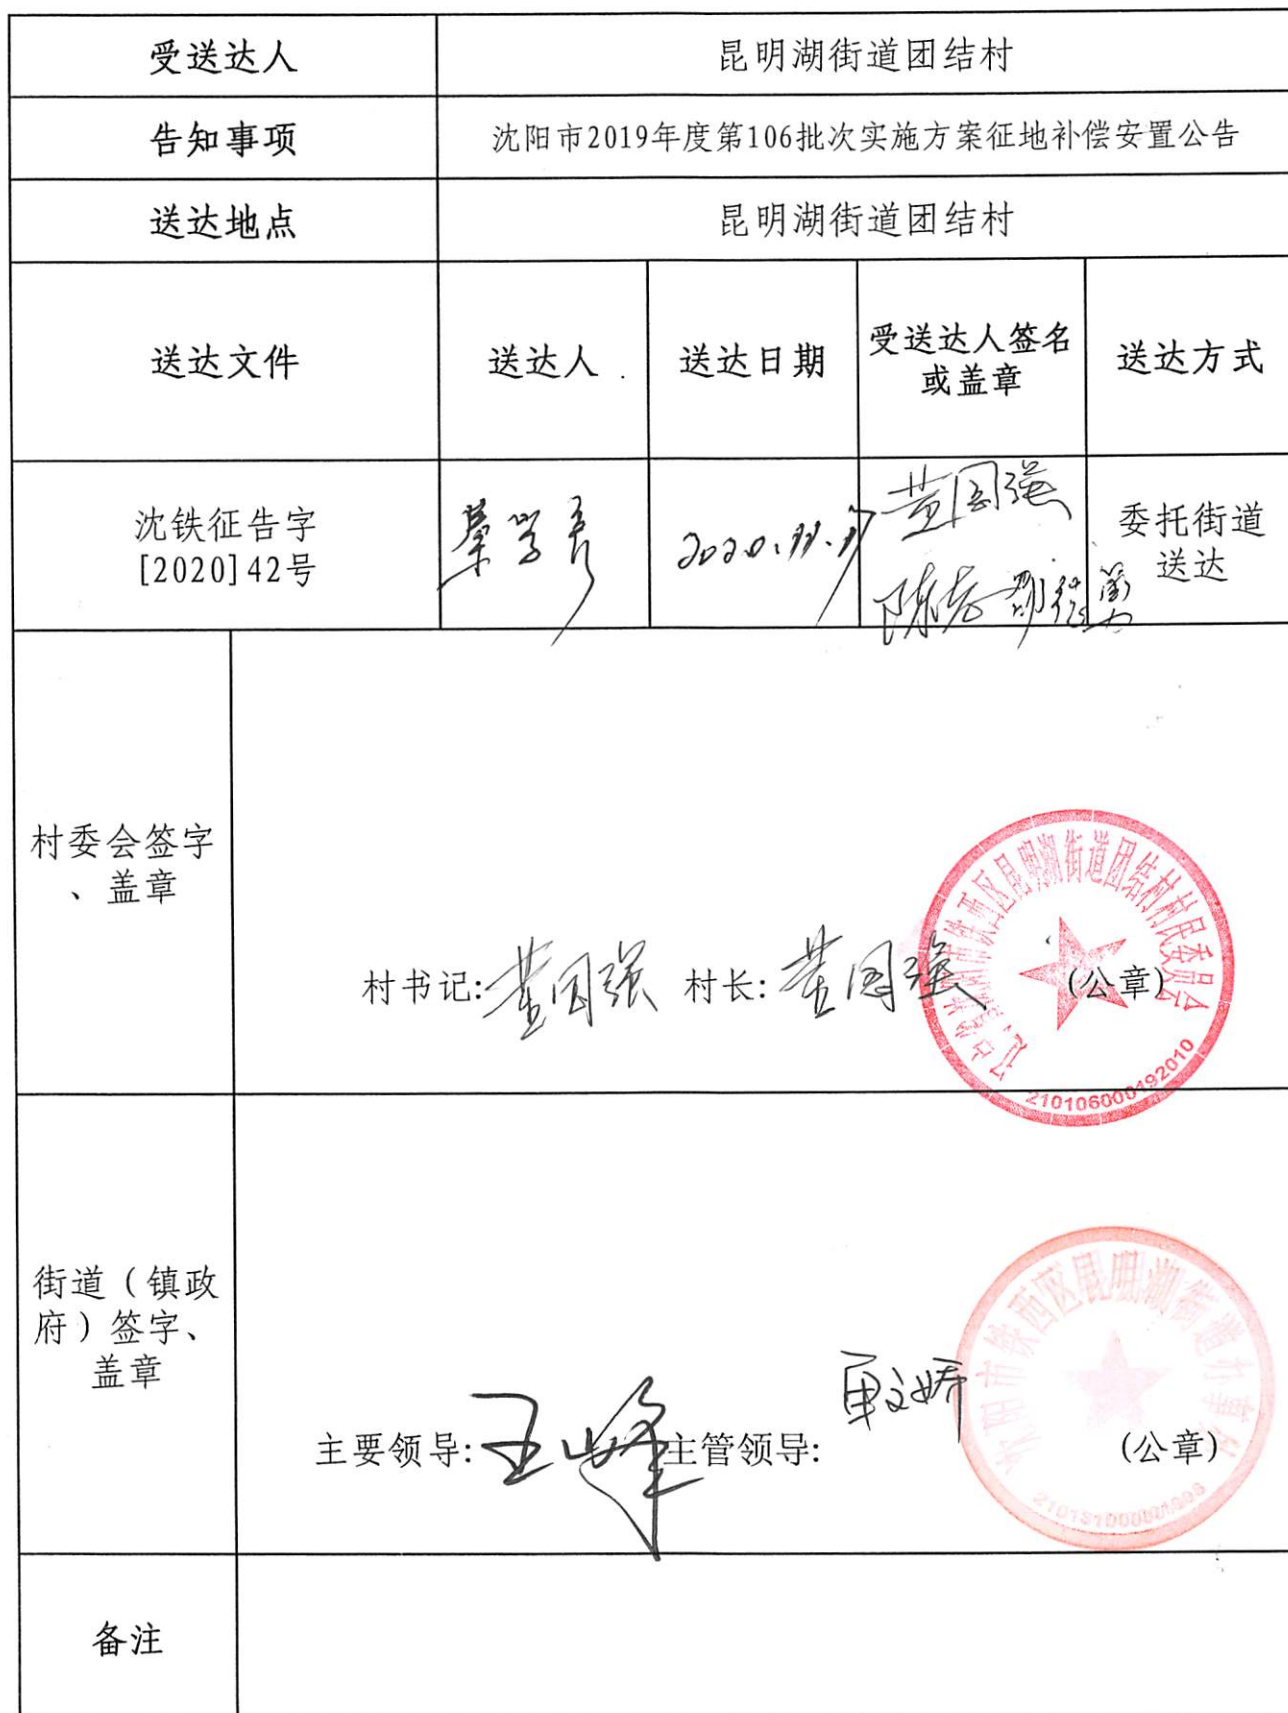 受送达人 昆明湖街道团结村
告知事项 沈阳市2019年度第106批次实施方案征地补偿安置公告
送达地点 昆明湖街道团结村
送达文件 送达人 送达日期 受送达人签名 送达方式
或盖章
沈铁征告字 委托街道
[2020]42号 送达
村委会签字
、盖章
村书记: 董国强 村长: 董国强 (公章)
昆明湖街道团结村村民委员会
210106000192010
街道（镇政
府）签字、
盖章
主要领导: 王峰 主管领导: (公章)
沈阳市铁西区昆明湖街道办事处
备注